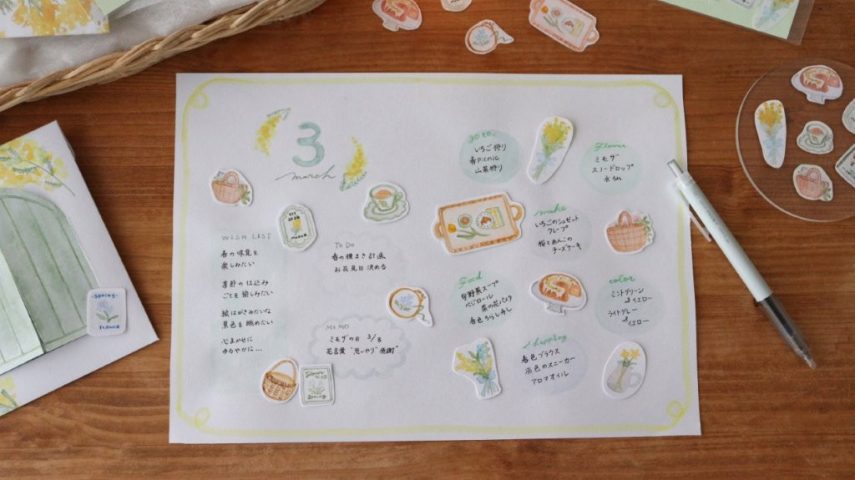 3
march
WISH LIST
春の味覚を
楽しみたい
季節の仕込み
ごとを愉しみたい
絵はがきみたいな
景色を眺めたい
心まかせに
ゆるやかに...
TO DO
春の種まき計画
お花見日 決める
MEMO
ミモザの日 3/8
花言葉 "思いやり" "感謝"
いちご狩り
春ピクニック
山菜狩り
Flower
ミモザ
スノードロップ
make
いちごのシュゼット
クレープ
桜とあんこの
チーズケーキ
Food
春野菜スープ
菜の花パスタ
春色ちらし寿し
color
ミントグリーン
& イエロー
ライトグレー
& イエロー
shopping
春色ブラウス
白色のスニーカー
アロマオイル